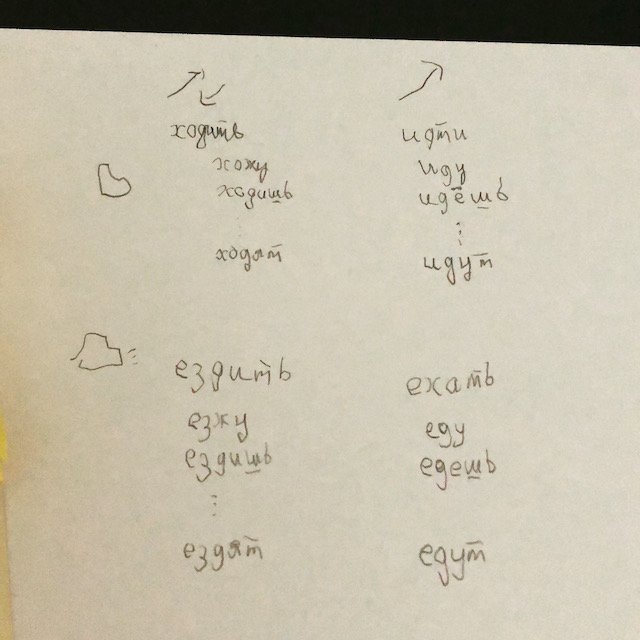 ходить идти
хожу иду
ходишь идёшь
⋮
ходят идут
ездить ехать
езжу еду
ездишь едешь
⋮
ездят едут